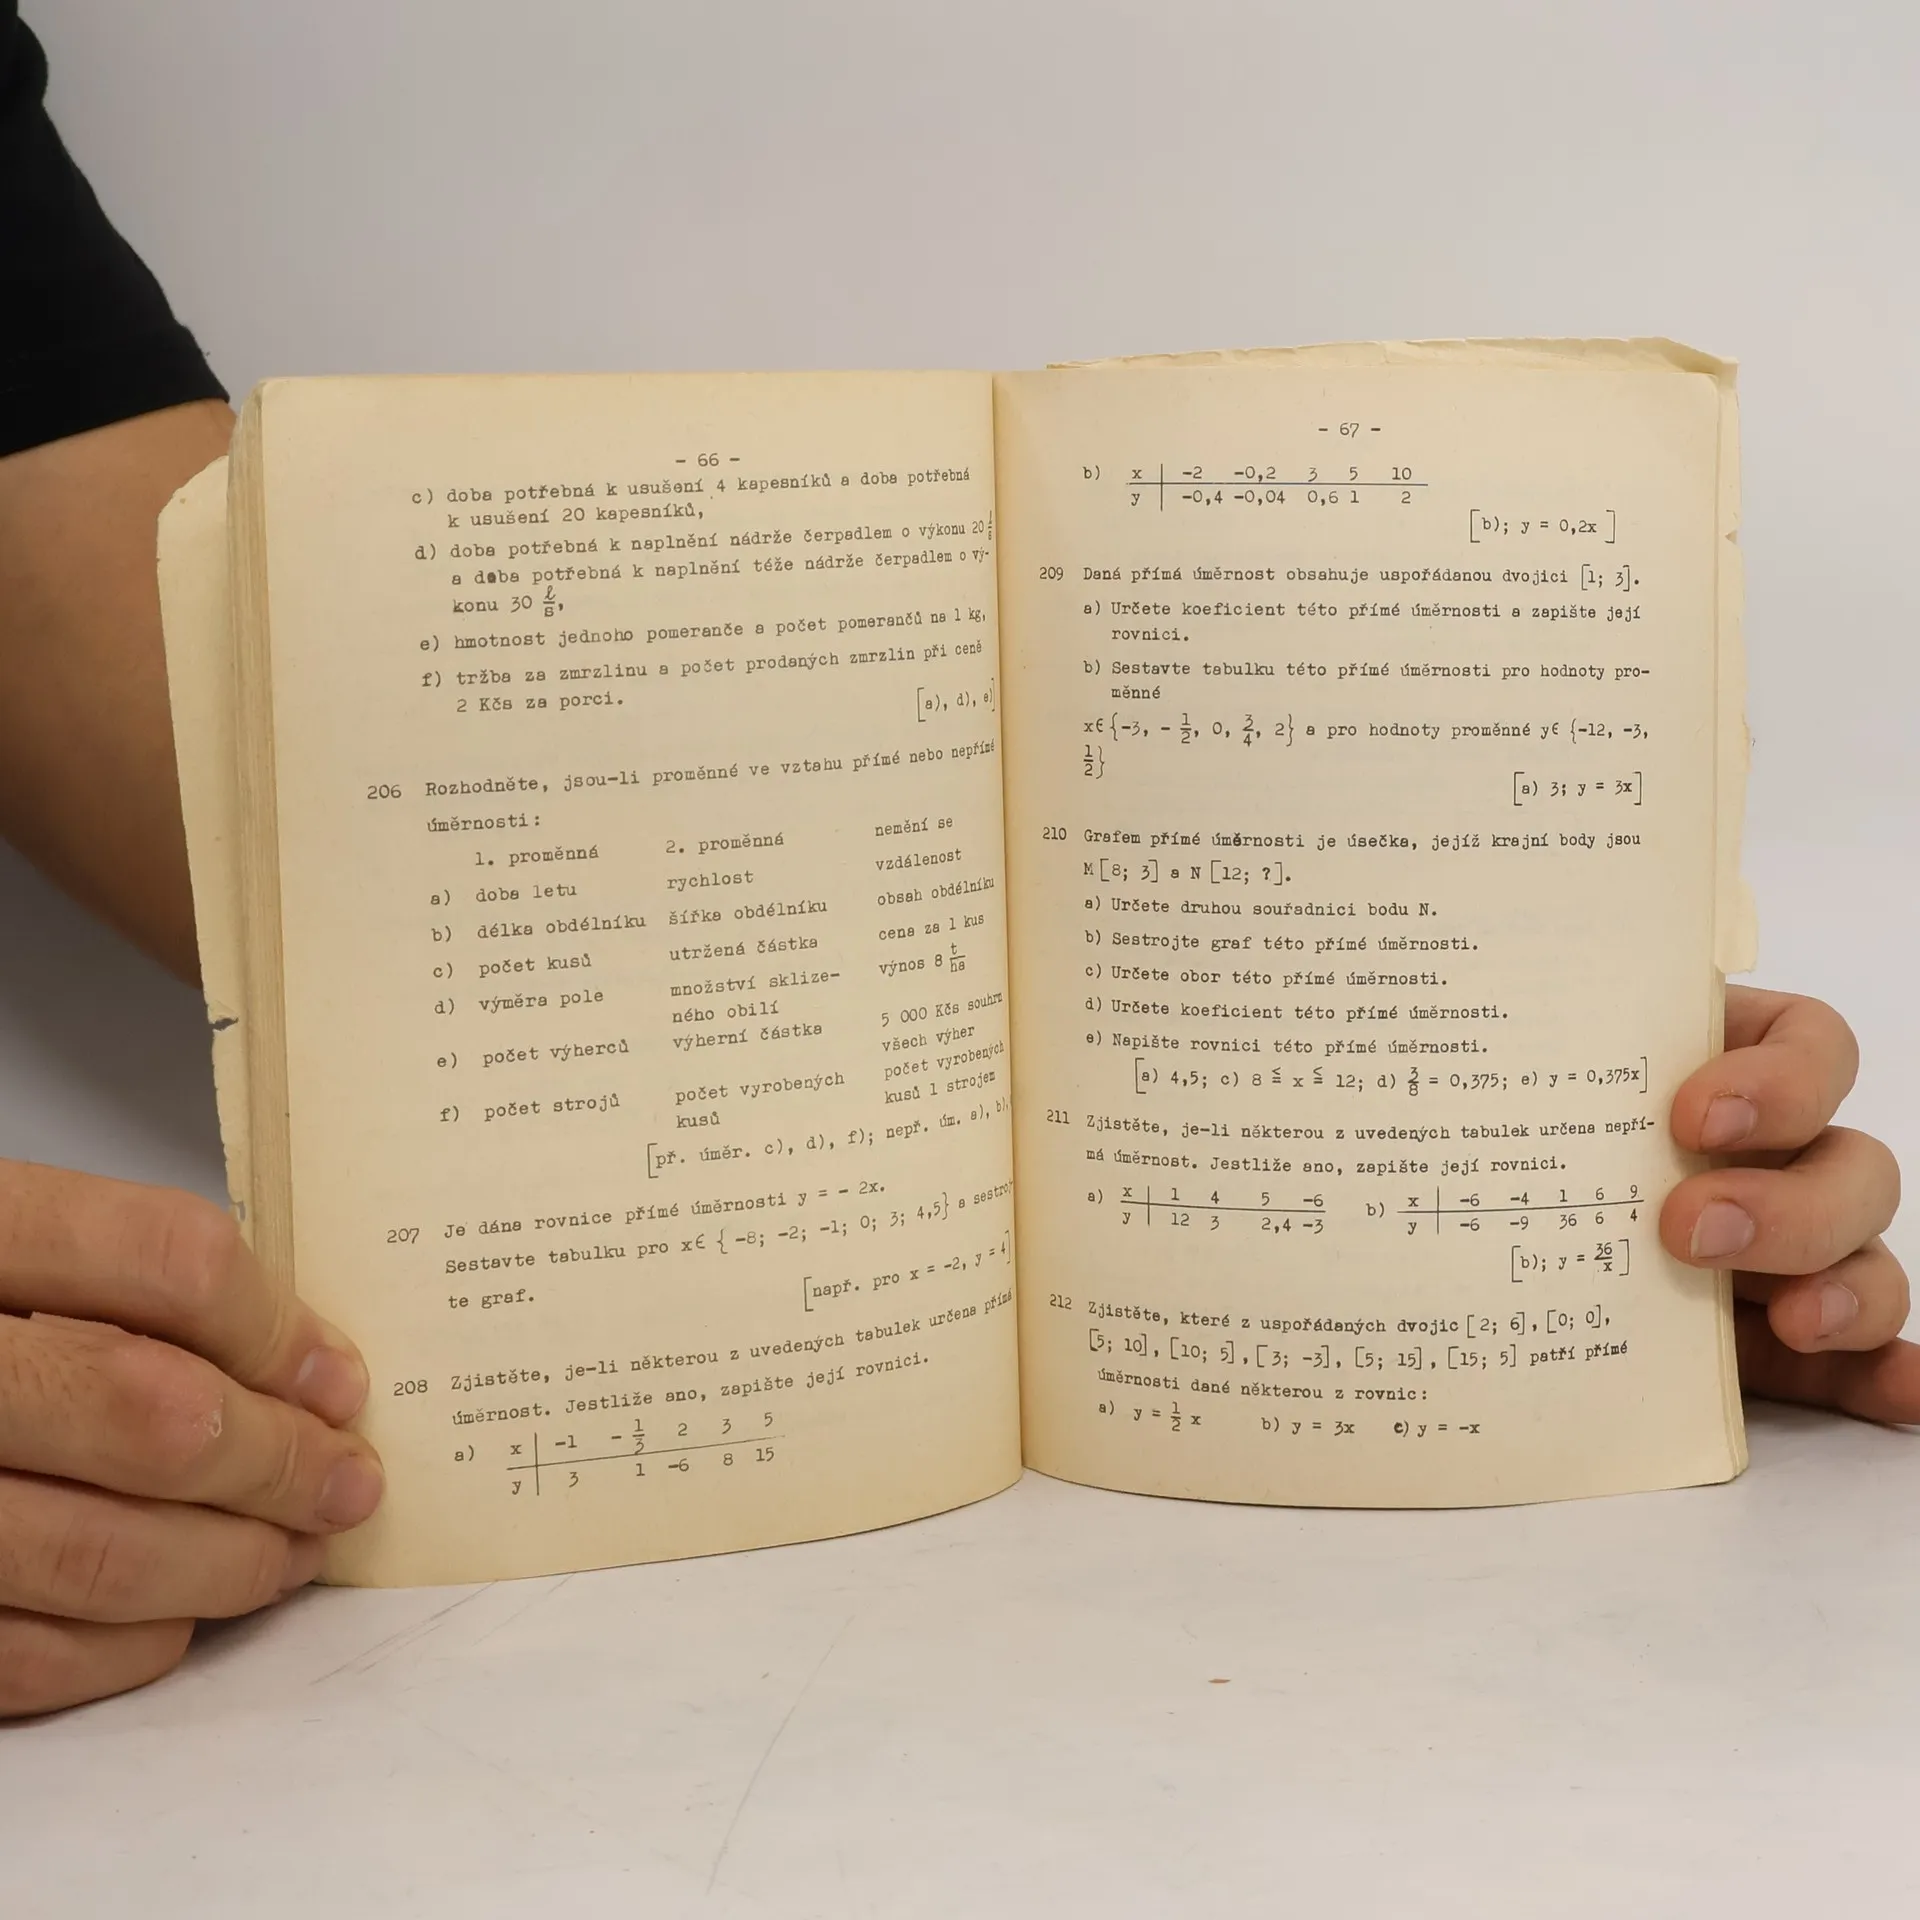 - 66 -
c) doba potřebná k usušení 4 kapesníků a doba potřebná
k usušení 20 kapesníků,
d) doba potřebná k naplnění nádrže čerpadlem o výkonu 20 l/s
a doba potřebná k naplnění téže nádrže čerpadlem o vý-
konu 30 ℓ/s,
e) hmotnost jednoho pomeranče a počet pomerančů na 1 kg,
f) tržba za zmrzlinu a počet prodaných zmrzlin při ceně
2 Kčs za porci.
[a), d), e)]
206 Rozhodněte, jsou-li proměnné ve vztahu přímé nebo nepřímé
úměrnosti:
1. proměnná 2. proměnná nemění se
a) doba letu rychlost vzdálenost
b) délka obdélníku šířka obdélníku obsah obdélníku
c) počet kusů utržená částka cena za 1 kus
d) výměra pole množství sklize- výnos 8 t/ha
ného obilí
e) počet výherců výherní částka 5 000 Kčs souhrn
všech výher
f) počet strojů počet vyrobených počet vyrobených
kusů kusů 1 strojem
[př. úměr. c), d), f); nepř. úm. a), b),
207 Je dána rovnice přímé úměrnosti y = - 2x.
Sestavte tabulku pro x∈ { -8; -2; -1; 0; 3; 4,5} a sestroj-
te graf.
[např. pro x = -2, y = 4]
208 Zjistěte, je-li některou z uvedených tabulek určena přímá
úměrnost. Jestliže ano, zapište její rovnici.
a) x | -1 - 1/3 2 3 5
y | 3 1 -6 8 15
- 67 -
b) x | -2 -0,2 3 5 10
y | -0,4 -0,04 0,6 1 2
[b); y = 0,2x ]
209 Daná přímá úměrnost obsahuje uspořádanou dvojici [1; 3].
a) Určete koeficient této přímé úměrnosti a zapište její
rovnici.
b) Sestavte tabulku této přímé úměrnosti pro hodnoty pro-
měnné
x∈ {-3, - 1/2, 0, 3/4, 2} a pro hodnoty proměnné y∈ {-12, -3,
1/2}
[a) 3; y = 3x]
210 Grafem přímé úměrnosti je úsečka, jejíž krajní body jsou
M [8; 3] a N [12; ?].
a) Určete druhou souřadnici bodu N.
b) Sestrojte graf této přímé úměrnosti.
c) Určete obor této přímé úměrnosti.
d) Určete koeficient této přímé úměrnosti.
e) Napište rovnici této přímé úměrnosti.
[a) 4,5; c) 8 ≦ x ≦ 12; d) 3/8 = 0,375; e) y = 0,375x]
211 Zjistěte, je-li některou z uvedených tabulek určena nepří-
má úměrnost. Jestliže ano, zapište její rovnici.
a) x | 1 4 5 -6 b) x | -6 -4 1 6 9
y | 12 3 2,4 -3 y | -6 -9 36 6 4
[b); y = 36/x ]
212 Zjistěte, které z uspořádaných dvojic [ 2; 6], [0; 0],
[5; 10], [10; 5], [ 3; -3], [5; 15], [15; 5] patří přímé
úměrnosti dané některou z rovnic:
a) y = 1/2 x b) y = 3x c) y = -x